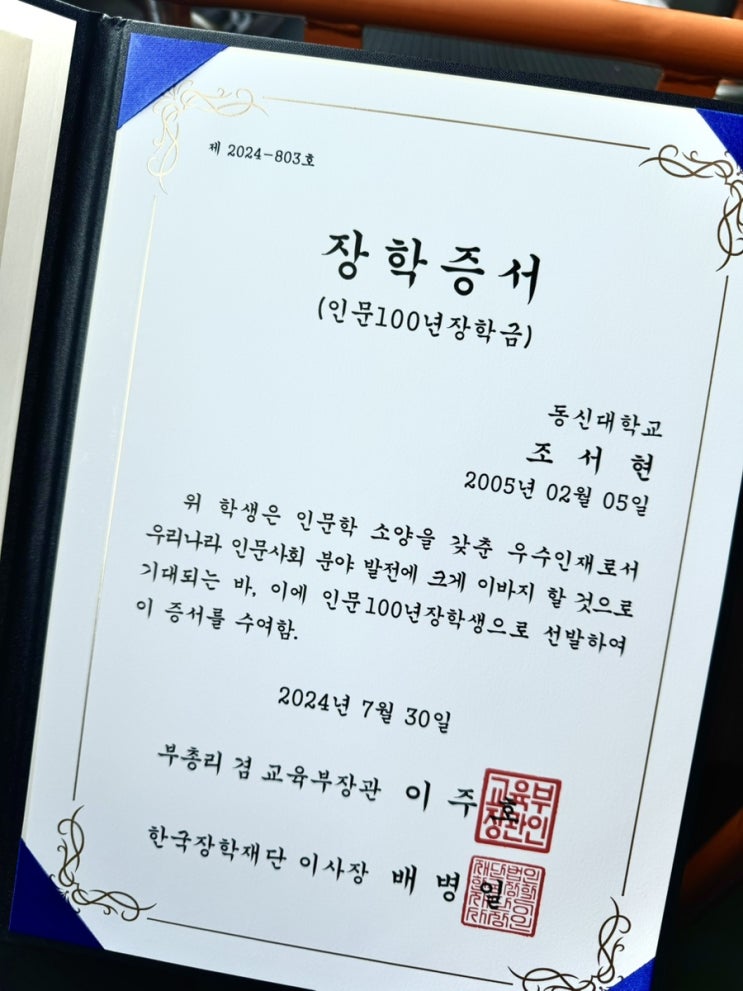 제 2024-803호
장학증서
(인문100년장학금)
동신대학교
조 서 현
2005년 02월 05일
위 학생은 인문학 소양을 갖춘 우수인재로서
우리나라 인문사회 분야 발전에 크게 이바지 할 것으로
기대되는 바, 이에 인문100년장학생으로 선발하여
이 증서를 수여함.
2024년 7월 30일
부총리 겸 교육부장관 이 주 호
교육부
장관인
한국장학재단 이사장 배 병 일